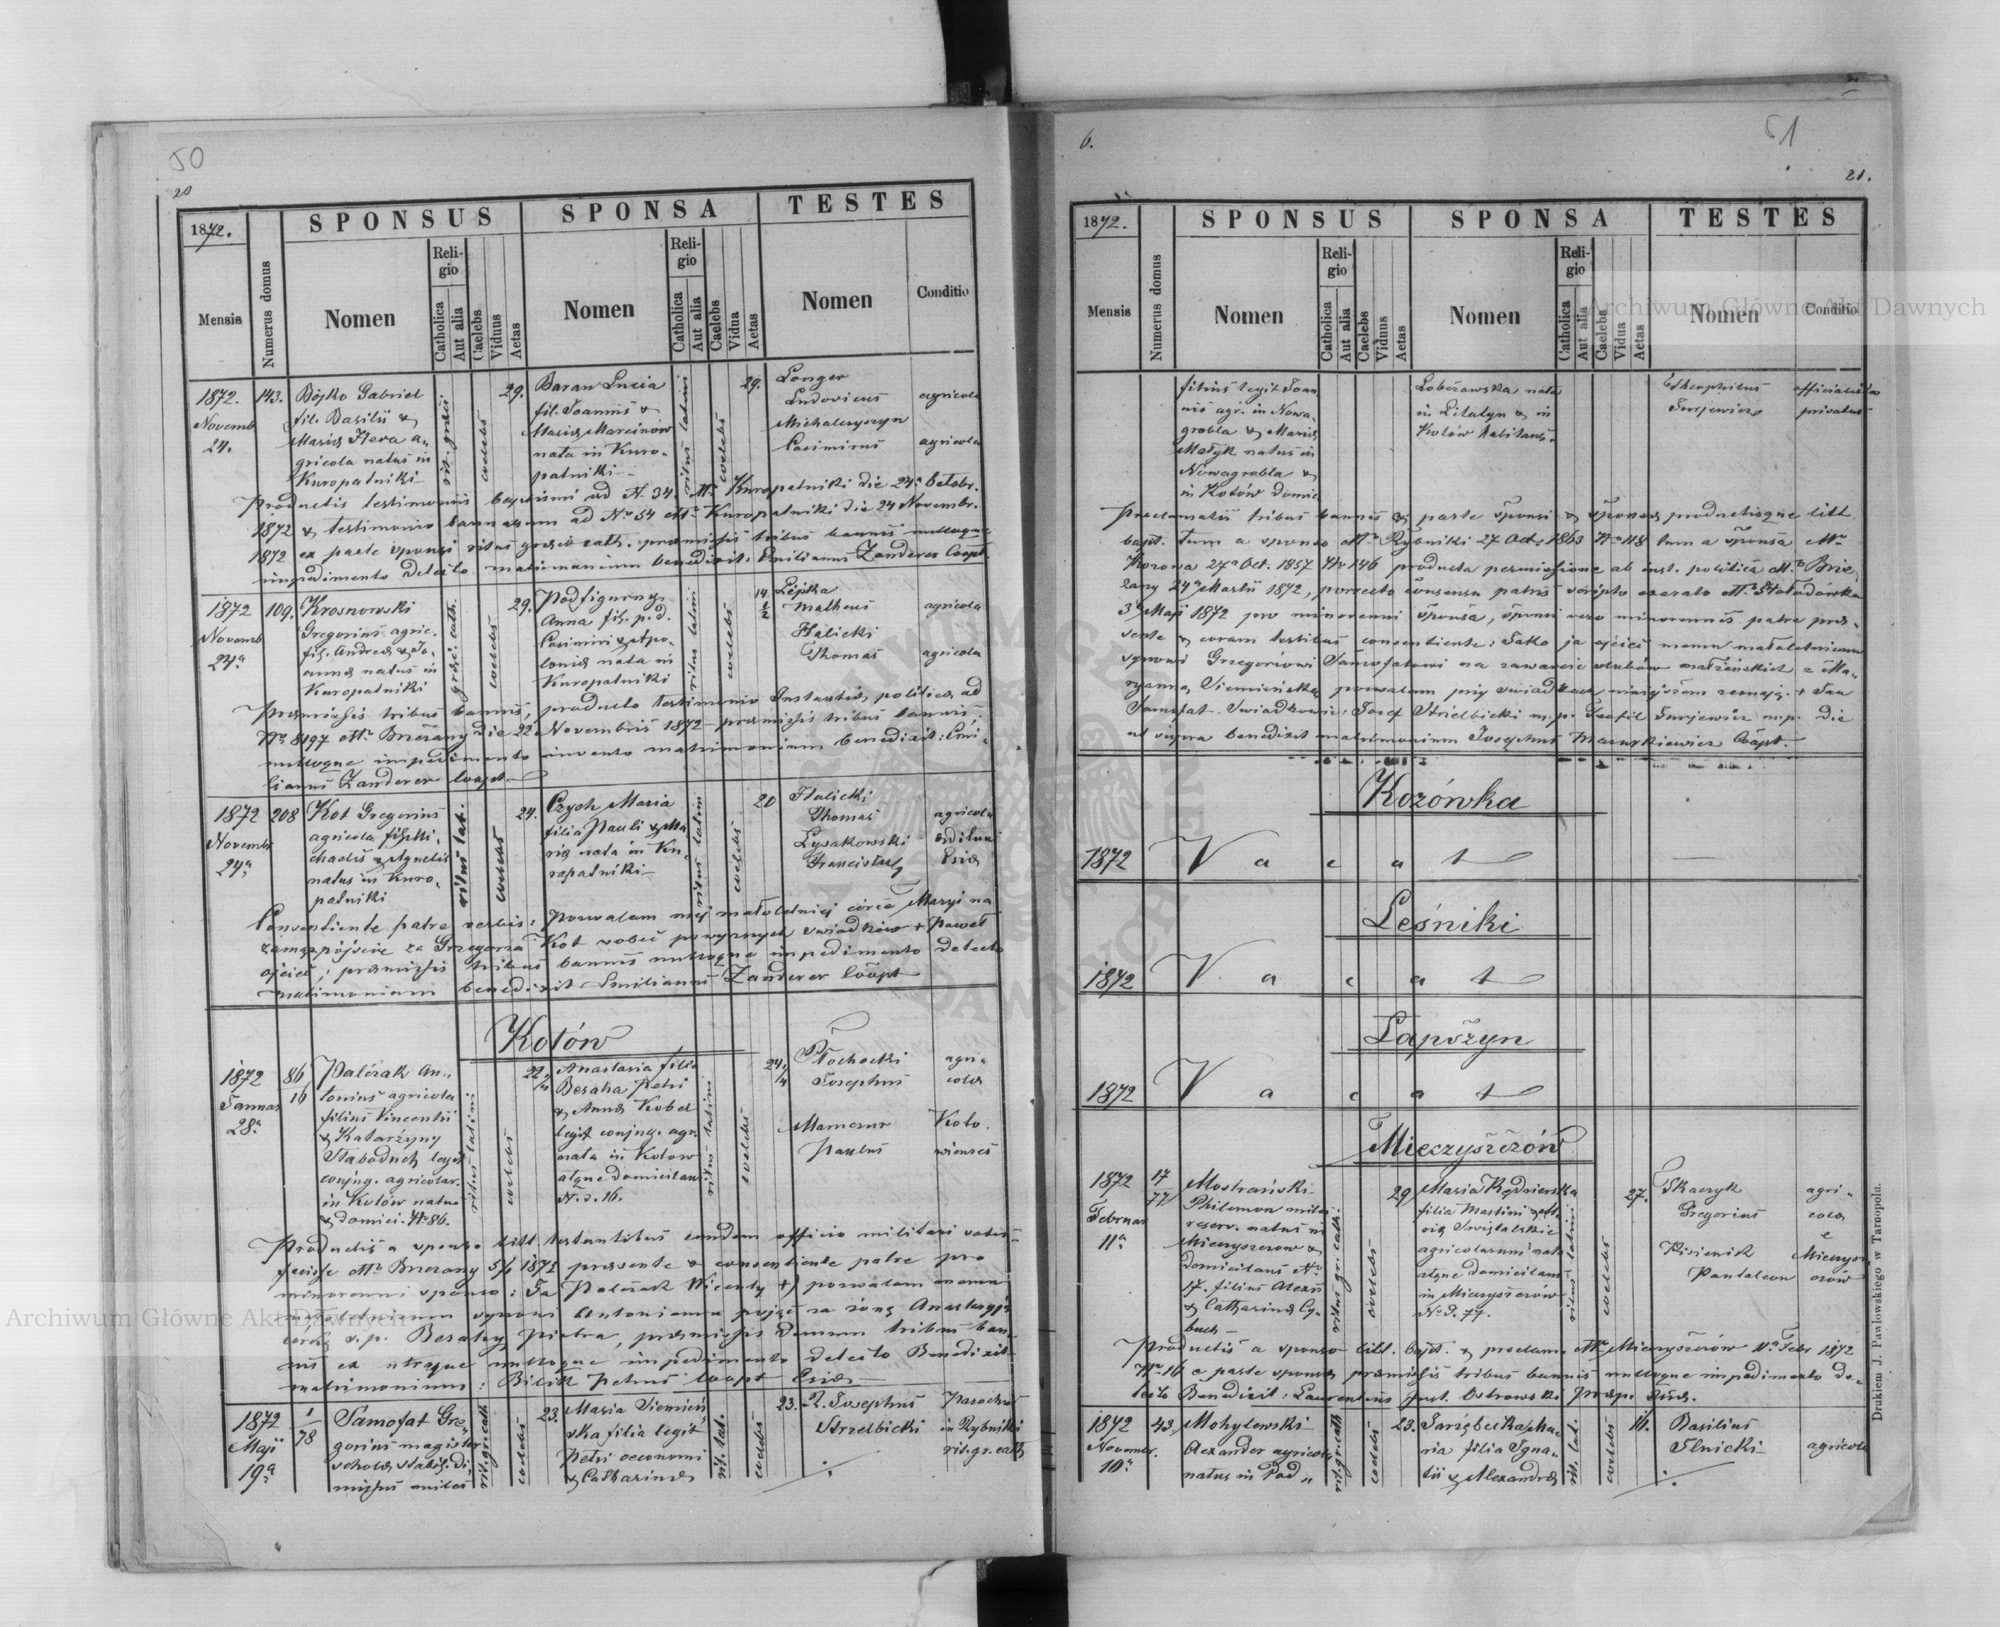 50
20
1872.
SPONSUS
SPONSA
TESTES
Mensis
Numerus domus
Nomen
Religio
Catholica
Aut alia
Caelebs
Viduus
Aetas
Nomen
Religio
Catholica
Aut alia
Caelebs
Vidua
Aetas
Nomen
Conditio
1872.
Novemb
24.
143.
Bojko Gabriel
fil. Basilii &
Maria Hera a-
gricola natus in
Kuropatniki
rit. graeci
coelebs
29.
Baran Lucia
fil. Joannis &
Maria Marcinow
nata in Kuro-
patniki
ritus latini
coelebs
29.
Longer
Ludovicus
agricola
Michalczyszyn
Casimirus
agricola
Productis testimonii baptismi ad N. 34. Kuropatniki die 24a Octobr.
1872 & testimonio bannorum ad No 54 Kuropatniki die 24 Novembr.
1872 ex parte sponsi ritus graeco cath. praemissis tribus bannis nulloque
impedimento detecto matrimonium benedixit: Emilianus Zanderer Coopt.
1872
Novemb
24a
109.
Krosnowski
Gregorius agric.
fil. Andreae & Jo-
anna natus in
Kuropatniki
graeci. cath.
coelebs
29.
Podfigurny
Anna fil. p. d.
Casimiri & Apo-
lonia nata in
Kuropatniki
ritus latini
coelebs
Lepka
Matheus
agricola
Halicki
Thomas
agricola
Praemissis tribus bannis, producto testimonio Instantiae politicae ad
No 8197 Brzezany die 22 Novembris 1872 praemissis tribus bannis
nulloque impedimento invento matrimonium benedixit: Emi-
lianus Zanderer Coopt.
1872
Novembr
24a
208
Kot Gregorius
agricola fil. Mi-
chaelis & Agnetis
natus in Kuro-
patniki
ritus lat.
coelebs
24.
Czych Maria
filia Pauli & Ma-
ria nata in Ku-
ropatniki
ritus latini
coelebs
20
Halicki
Thomas
agricola
Lysakowski
Franciscus
Consentiente patre verbis: Pozwalam mej małoletniej córce Maryi na
zamązpójście za Grzegorza Kot wobec powyższych świadków + Paweł
ojciec; praemissis tribus bannis nulloque impedimento detecto
matrimonium benedixit Emilianus Zanderer Coopt
Kotów
1872
Januar
28a
86
16
Palczak An-
tonius agricola
filius Vincentii
& Katarzyny
Staboduch legit
conjug. agricolar.
in Kotów natus
& domici. No 86.
ritus latini
coelebs
22
Anastasia filia
Beraha Petri
& Anna Kobel
legit conjug. agr.
nata in Kotow
atque domicilians
N. d. 16.
ritus latini
coelebs
24.
Płochocki
Josephus
agri-
colae
Mamczur
Paulus
Koto-
wienses
Productis a sponso litt. testantibus eundem officio militari satis-
fecisse Brzezany 5/1 1872 praesente & consentiente patre pro
minorenni sponso: Ja Palczak Wicenty +) pozwalam memu
małoletniemu synowi Antoniemu pojąć za żonę Anastazyję
córkę s.p. Berahy Piotra, praemissis demum tribus ban-
nis ex utraque nulloque impedimento detecto Benedixit
matrimonium: Bilik Petrus Coopt
1872
Maji
19a
1
78
Samofat Gre-
gorius magister
scholae stabil. di-
missus miles
rit. gr. cath
coelebs
23.
Maria Siemień-
ska filia legit
Petri oeconomi
& Catharinae
rit. lat.
coelebs
23.
R. Josephus
Strzelbicki
Parochus
in Rybniki
rit. gr. cath
6.
51
21.
1872.
SPONSUS
SPONSA
TESTES
Mensis
Numerus domus
Nomen
Religio
Catholica
Aut alia
Caelebs
Viduus
Aetas
Nomen
Religio
Catholica
Aut alia
Caelebs
Vidua
Aetas
Nomen
Conditio
filius legit Joan
nis agr. in Nowa-
grobla & Maria
Matyk natus in
Nowagrobla &
in Kotów domic
Lobczowska nata
in Litatyn & in
Kotów habitans.
Theophilus
Turjewicz
officialista
privatus
Proclamatis tribus bannis ex parte sponsi & sponsae productisque litt
bapt. tum a sponso Rybniki 27 Oct. 1863 No 118 tum a sponsa
Kozowa 27a Oct. 1857 No 146 producta permissione ab inst. politica Brze
zany 24a Martii 1872, porrecto consensu patris scripto exarato
3a Maji 1872 pro minorenni sponsa, sponsi vero minorennis patre prae-
sente & coram testibus consentiente: Jako ja ojciec memu małoletniemu
synowi Grzegorzowi Samofatowi na zawarcie ślubów małżeńskich z Ma-
ryanną Siemieńską pozwalam przy świadkach niniejszem zezwaj. + Jan
Samofat. Świadkowie: Josef Strzelbicki m.p. Teofil Turjewicz m.p. Die
ut supra benedixit matrimonium Josephus Mazurkiewicz Coopt.
Kozówka
1872
Vacat
Leśniki
1872
Vacat
Łapszyn
1872
Vacat
Mieczyszczów
1872
Februar
11a
17
77
Mostrański
Philemon miles
reserv. natus in
Mieczyszczow &
domicilans No
17. filius Alexii
& Catharinae Cy-
buch
ritus gr. cath.
coelebs
29
Maria Kędzierska
filia Martini & Ma
ria Świstalskie
agricolarum nata
atque domicilans
in Mieczyszczów
No D. 77.
ritus latini
coelebs
27.
Tkaczyk
Gregorius
agri-
colae
e
Kisienik
Pantaleon
Mieczysz
czów
Productis a sponso litt. bapt. & proclam. Mieczyszczów 11a Febr 1872
No 16 e parte sponsae praemissis tribus bannis nulloque impedimento de-
tecto Benedixit: Laurentius Just. Ostrowski
1872
Novembr.
10a
43
Mohylowski
Alexander agricola
natus in Pod-
rit. gr. cath
coelebs
23.
ria filia Igna-
tii & Alexandrae
rit. lat.
coelebs
16.
Basilius
Ilnicki
agricola
Drukiem J. Pawłowskiego w Tarnopolu.
Archiwum Główne Akt Dawnych
Archiwum Główne Akt Dawnych